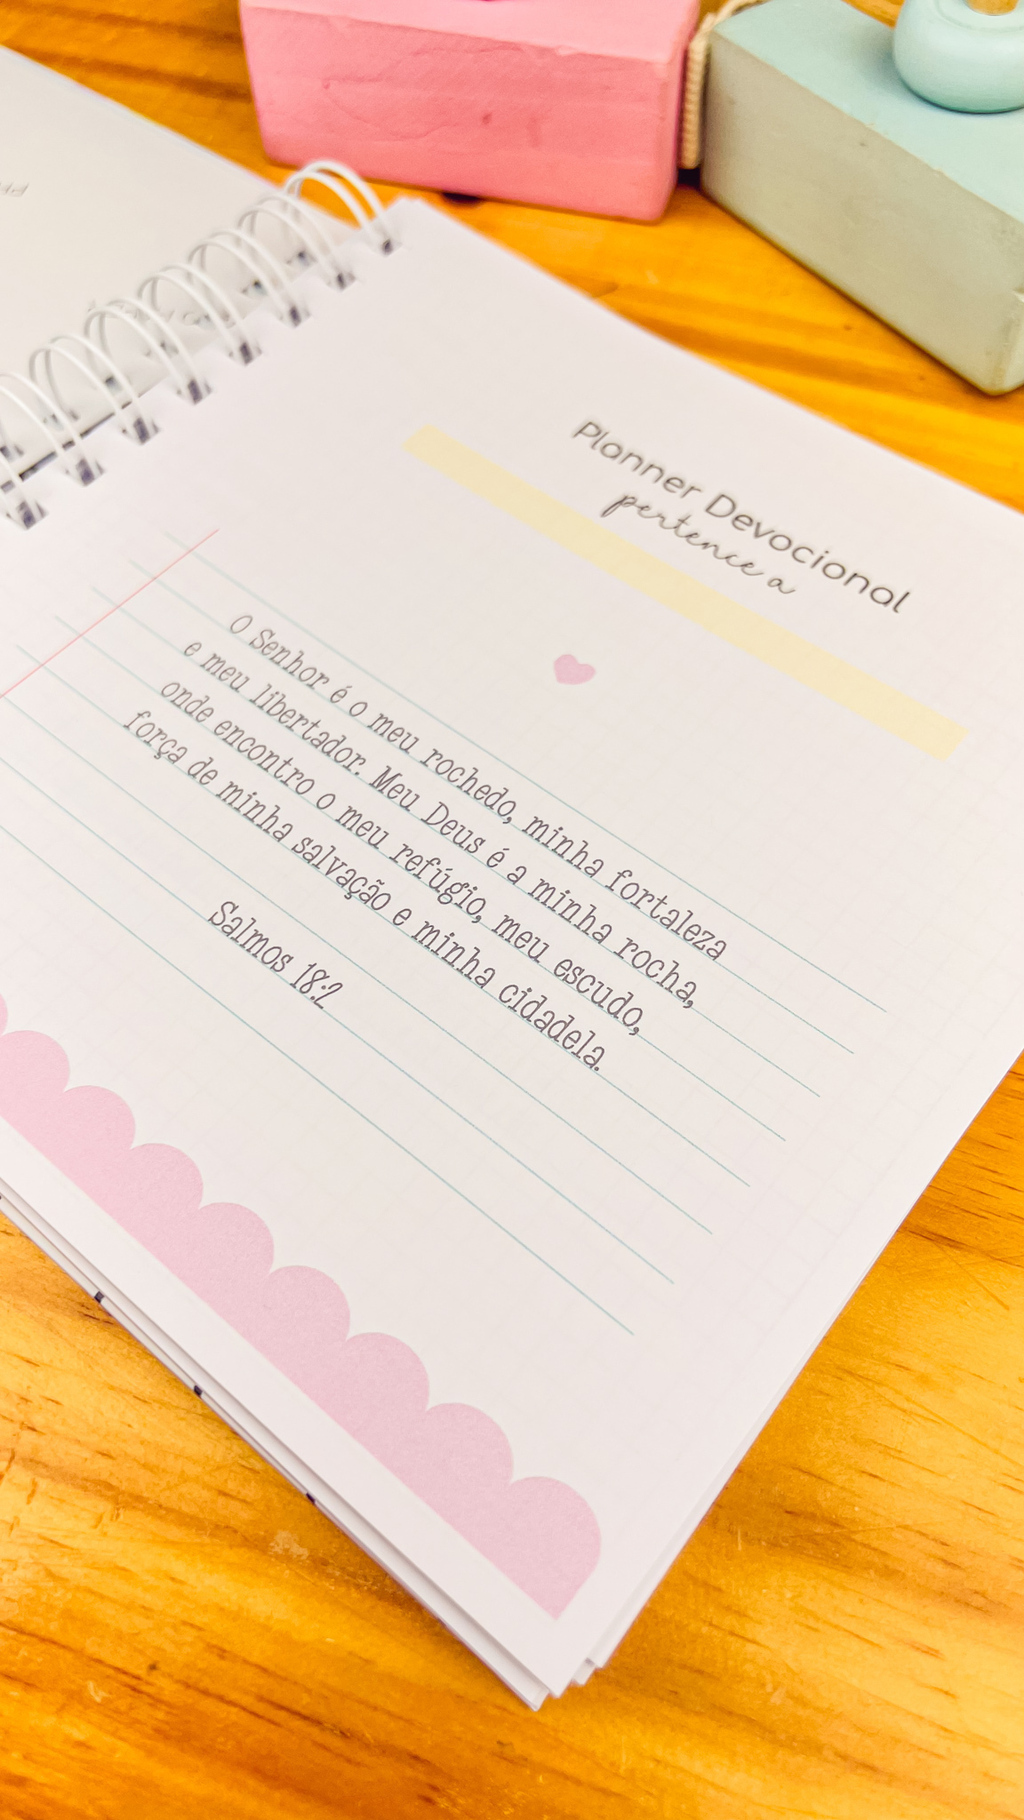 Planner Devocional
pertence a
O Senhor é o meu rochedo, minha fortaleza
e meu libertador. Meu Deus é a minha rocha,
onde encontro o meu refúgio, meu escudo,
força de minha salvação e minha cidadela.
Salmos 18:2